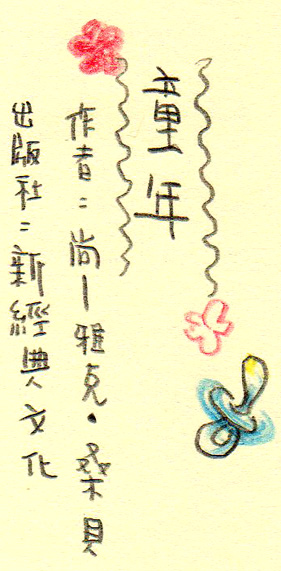 童年
作者：尚－雅克·桑貝
出版社：新經典文化